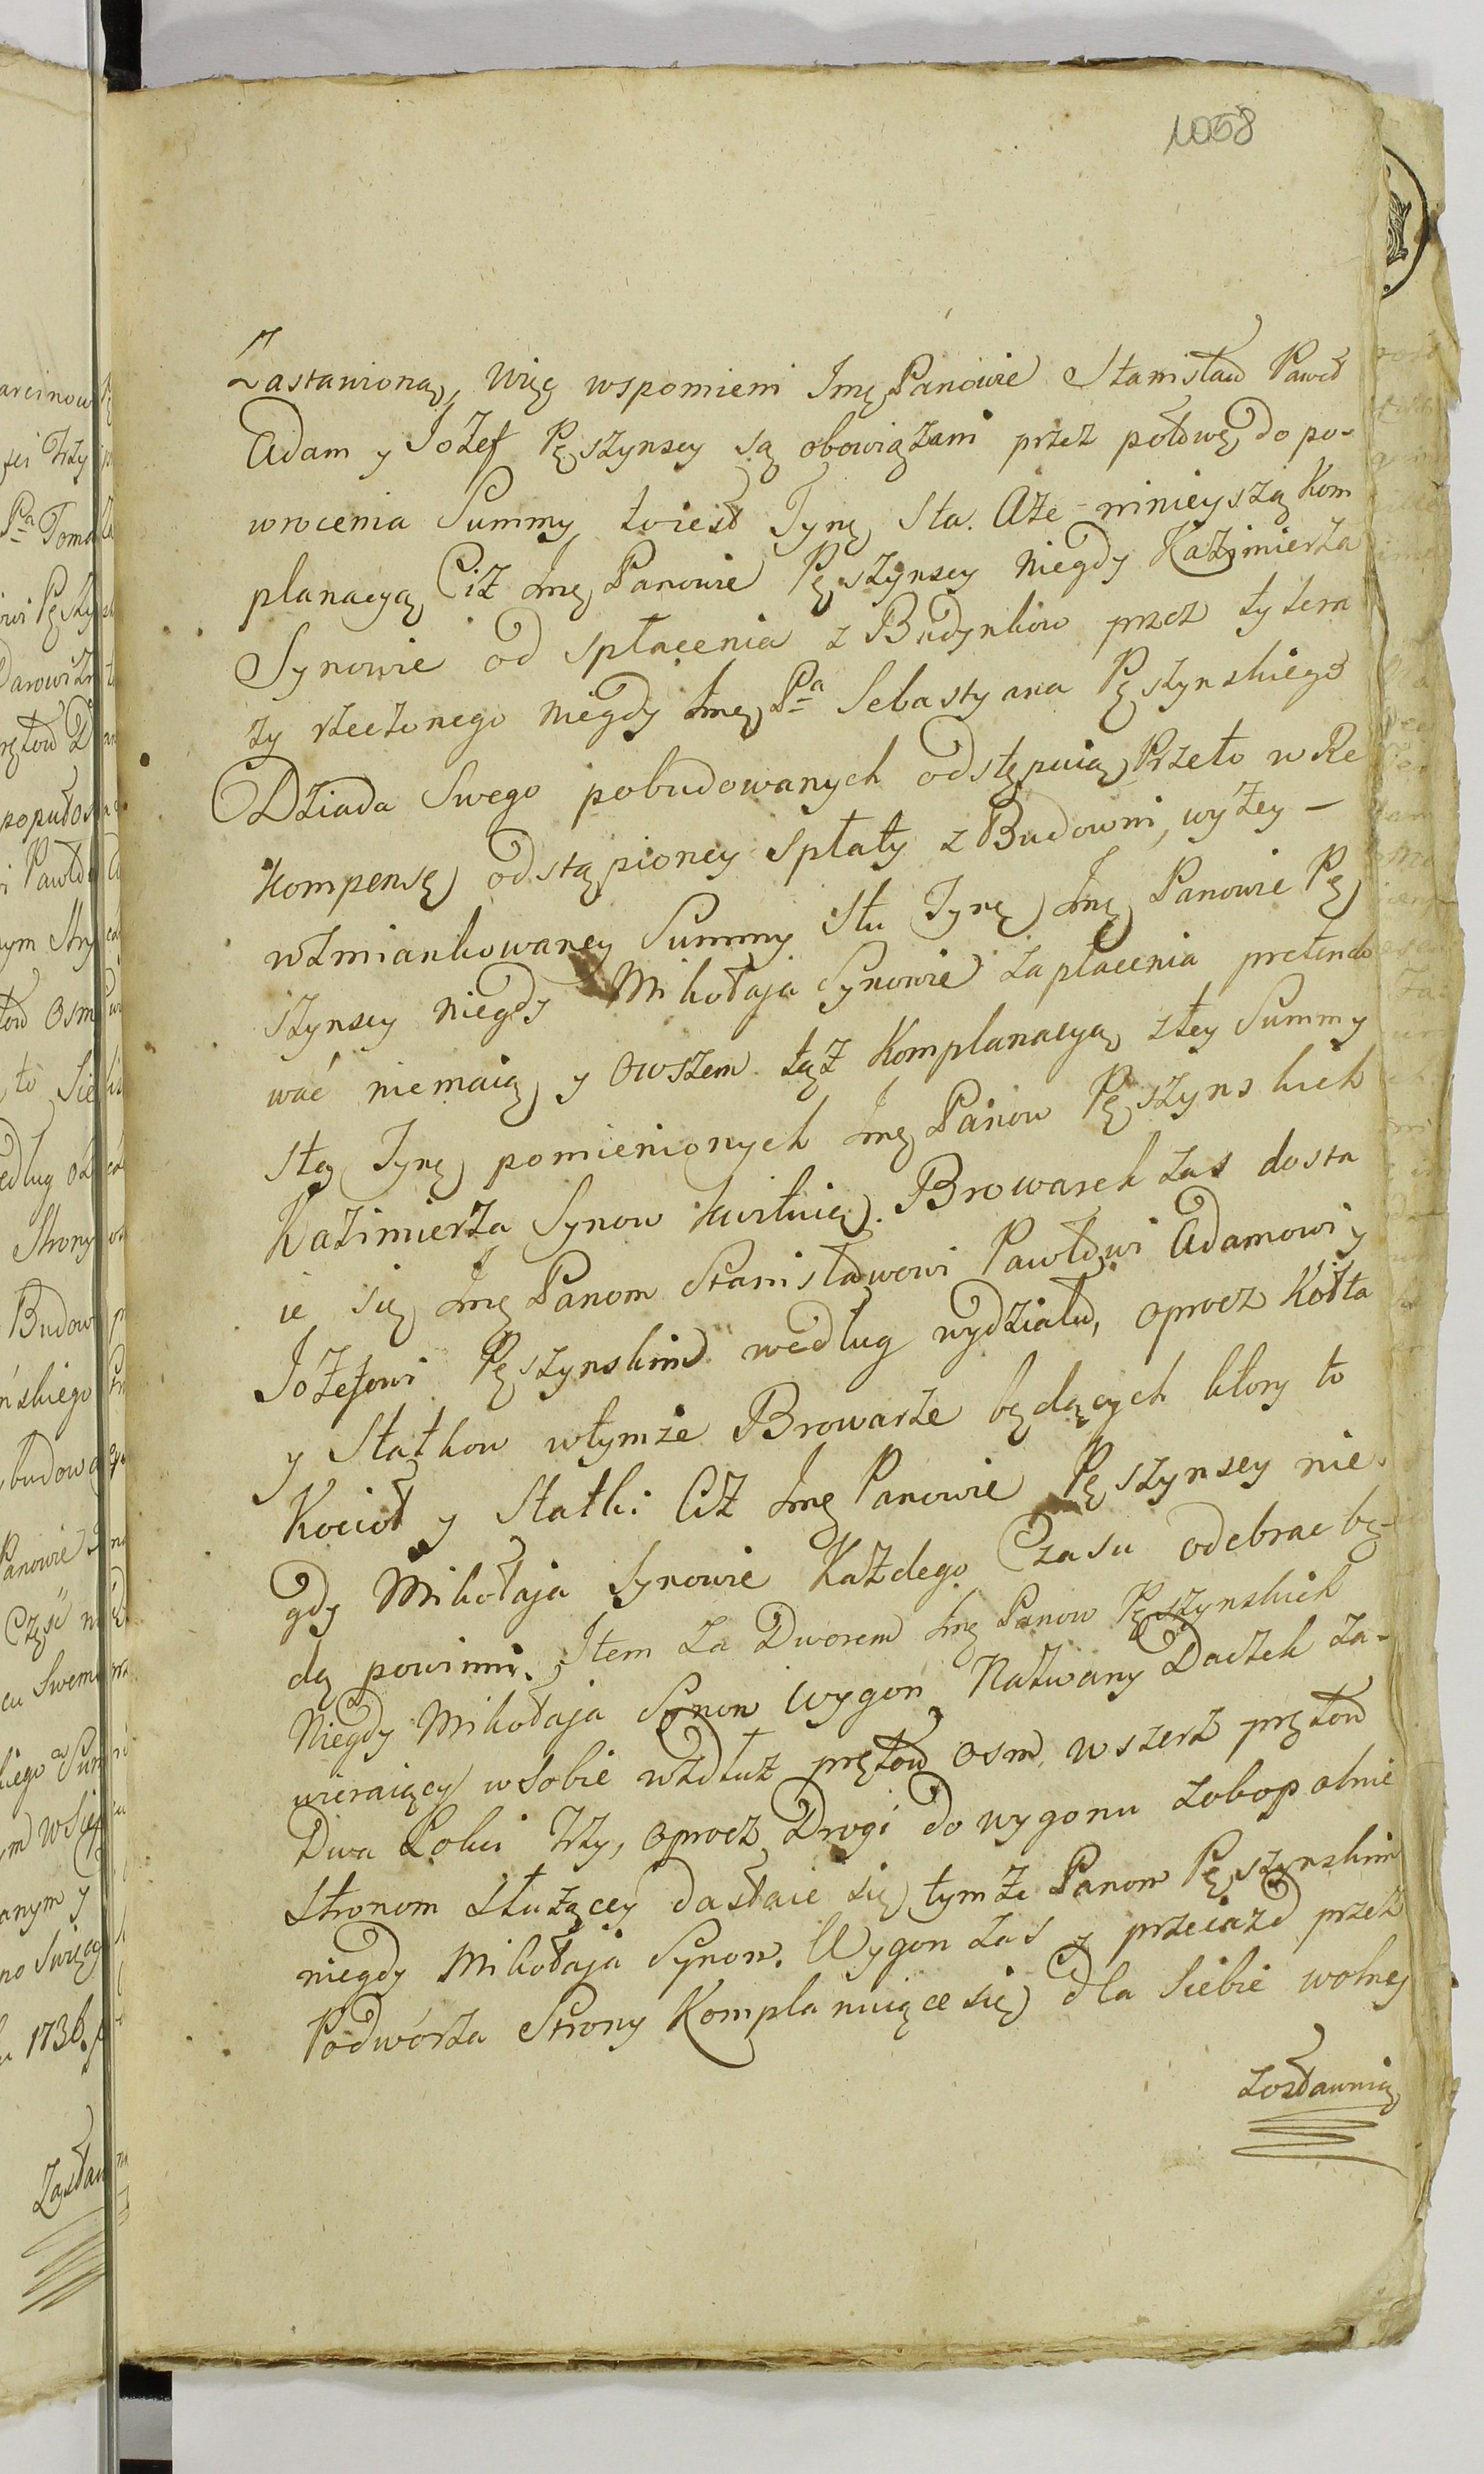 1058
Zastawioną, więc wspomieni Jmę Panowie Stanisław Paweł
Adam y Jozef Pęszynscy są obowiązani przez połowę do po-
wrocenia Summy toiest Tynę. Sta. Aże ninieyszą Kom
planacyą Ciż Jmę Panowie Pęszynscy niegdy Kazimierza
Synowie od spłacenia z Budynkow przez ty tera
zy rzeczonego niegdy Jmę Pa Sebastyana Pęszynskiego
Dziada Swego pobudowanych odstępuią, Przeto w Re
kompensę odstąpioney spłaty z Budowni, wyżey -
wzmiankowaney Summy Stu Tynę Jmę Panowie Pę
szynscy niegdy Mikołaja Synowie zapłacenia pretendo
wać niemaią, y owszem tąż Komplanacyą ztey Summy
Stą Tynę pomienionych Jmę Panow Pęszynskich
Kazimierza Synow kwituią. Browarek zas dosta
ie się Jmę Panom Stanisławowi Pawłowi Adamowi y
Jozefowi Pęszynskim według wydziału, oprocz Kotła
y Statkow wtymże Browarze będących ktory to
Kocioł y Statki Ciż Jmę Panowie Pęszynscy nie-
gdy Mikołaja Synowie Każdego Czasu odebrac bę-
dą powinni. Item za Dworem Jmę Panow Pęszynskich
Niegdy Mikołaja Synow Wygon Nazwany Daczek za-
wieraiący w sobie wzdłuż prętow osm, wszerz prętow
Dwa Łokci trzy, oprocz Drogi do wygonu zobopolnie
Stronom służącey dostaie się tymże Panom Pęszynskim
niegdy Mikołaja Synom. Wygon zas y przeiazd przez
Podwórza Strony Komplanuiące się dla siebie wolny
zostawuią